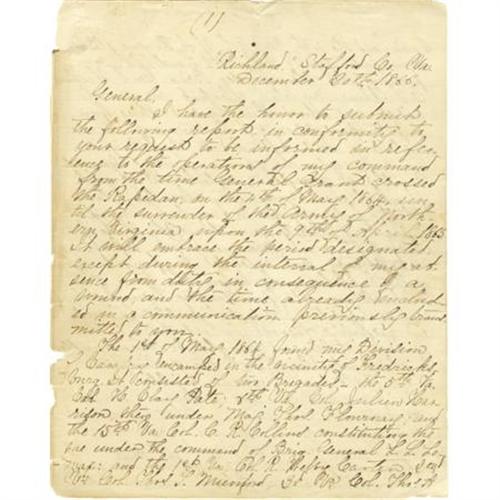 (1)
Richland Stafford Co. Va.
December 20th 1866.
General,
I have the honor to submit
the following report in conformity to
your request to be informed in refer-
ence to the operations of my command
from the time General Grant crossed
the Rapidan, on the 4th of May 1864, un-
til the surrender of the Army of North-
ern Virginia upon the 9th of April 1865
It will embrace the period designated
except during the interval of my ab-
sence from duty in consequence of a
wound and the time already
in a communication previously trans-
mitted to you.
The 1st of May 1864 found my Division
of Cavy encamped in the vicinity of Fredericks-
burg. It consisted of two Brigades - the 5th Va
Col. H. Clay Pate: 5th Va. Col. Julien Har-
rison then under Maj. Flournoy and
the 15th Va. Col. C. R. Collins constituting the
one under the command of Brig. General L. L. Lo-
max: and the 1st Va. Col. R. Welby Carter, 2nd
Va. Col. Thos. T. Munford 3d Va. Col. Thos. H